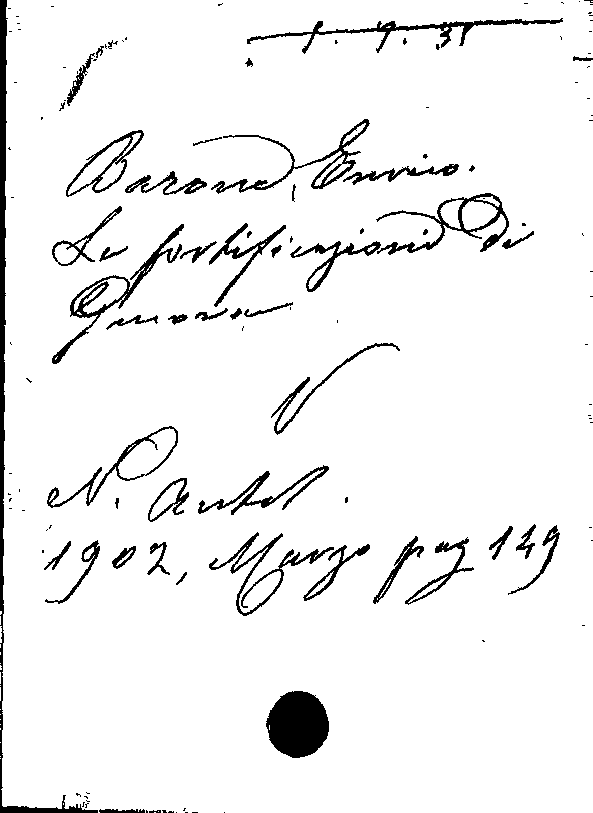 Barone, Enrico.
Le fortificazioni di
Genova
V
N. Antol.
1902, Marzo pag 149